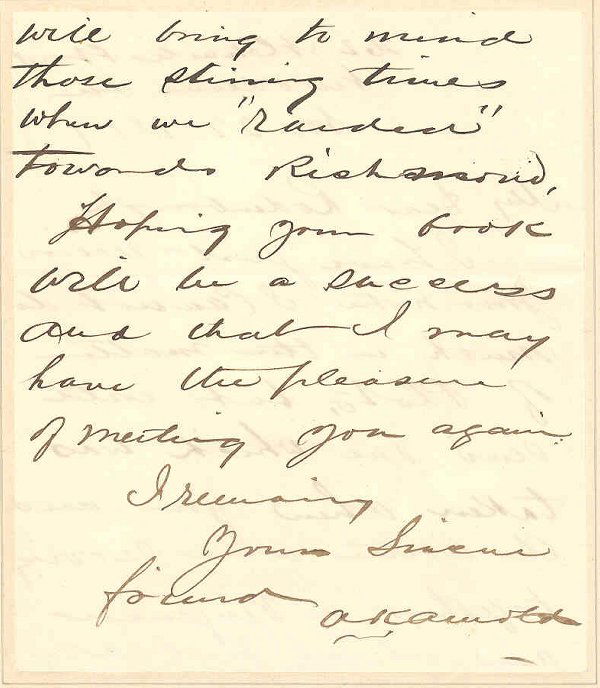 will bring to mind
those stirring times
when we "raided"
towards Richmond,
Hoping your book
will be a success
and that I may
have the pleasure
of meeting you again.
I remain,
Your Sincere
friend A K Arnold